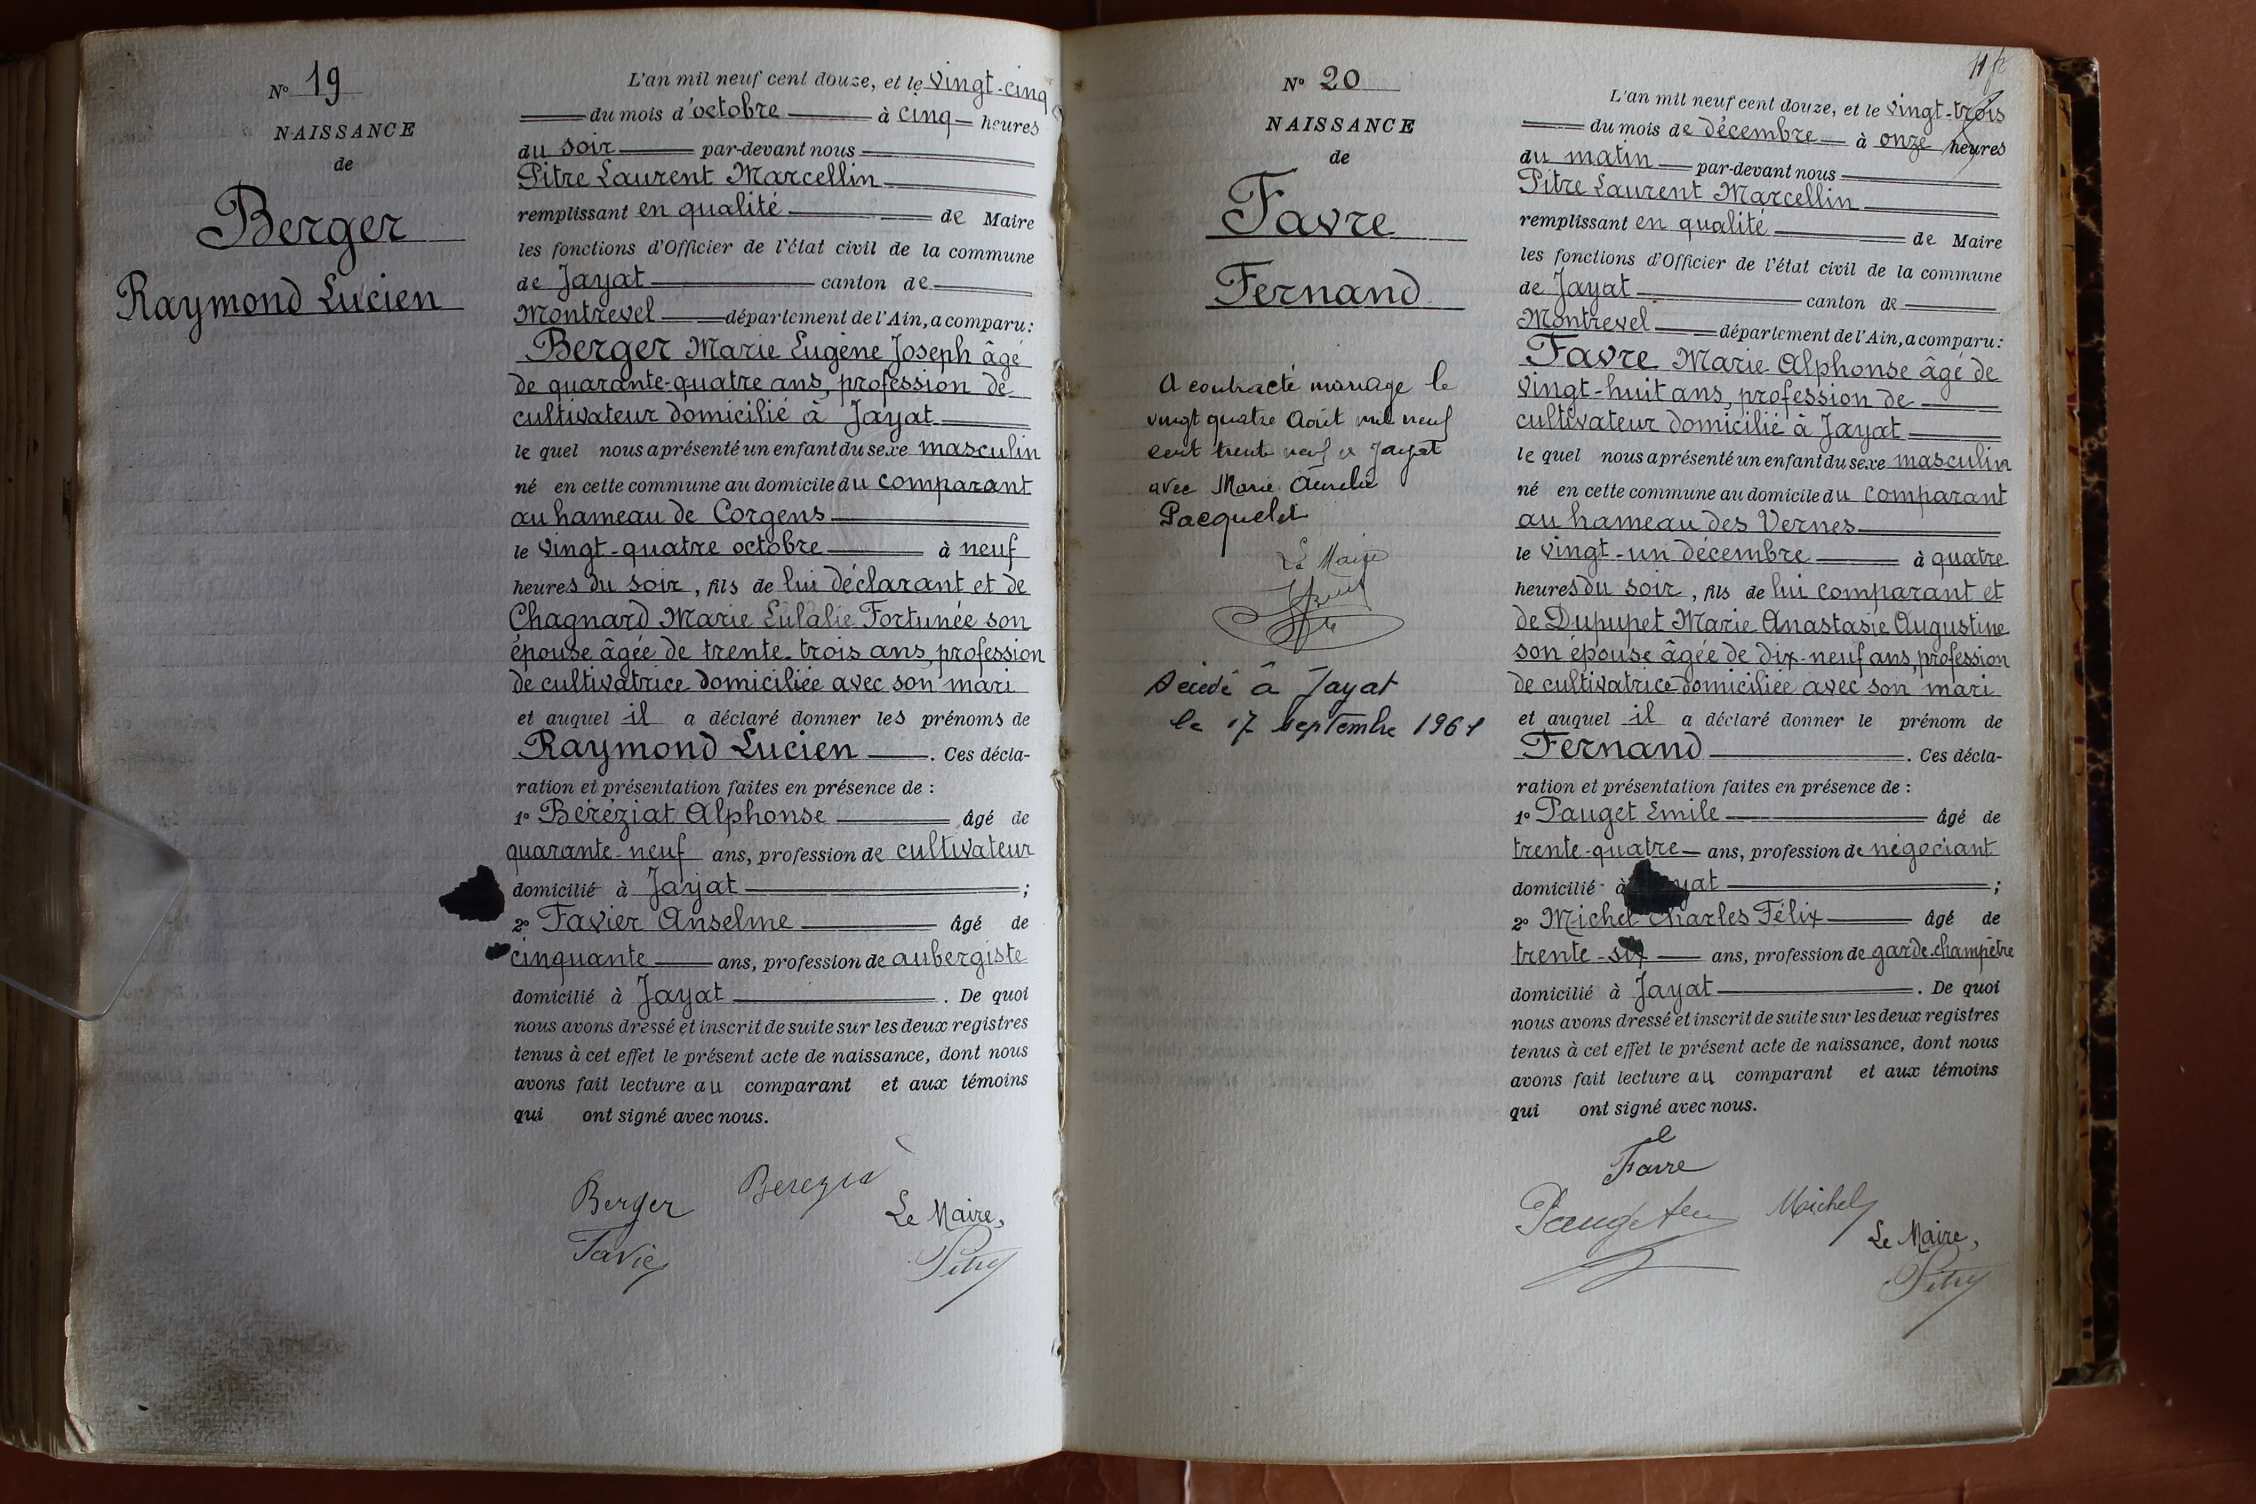 N° 19
NAISSANCE
de
Berger
Raymond Lucien
L'an mil neuf cent douze, et le vingt-cinq
du mois d'octobre à cinq heures
du soir par-devant nous
Pitre Laurent Marcellin
remplissant en qualité de Maire
les fonctions d'Officier de l'état civil de la commune
de Jayat canton de
Montrevel département de l'Ain, a comparu :
Berger Marie Eugène Joseph âgé
de quarante-quatre ans, profession de
cultivateur domicilié à Jayat
le quel nous a présenté un enfant du sexe masculin
né en cette commune au domicile du comparant
au hameau de Corgens
le vingt-quatre octobre à neuf
heures du soir, fils de lui déclarant et de
Chagnard Marie Eulalie Fortunée son
épouse âgée de trente-trois ans, profession
de cultivatrice domiciliée avec son mari
et auquel il a déclaré donner les prénoms de
Raymond Lucien. Ces décla-
ration et présentation faites en présence de :
1° Béréziat Alphonse âgé de
quarante-neuf ans, profession de cultivateur
domicilié à Jayat ;
2° Favier Anselme âgé de
cinquante ans, profession de aubergiste
domicilié à Jayat. De quoi
nous avons dressé et inscrit de suite sur les deux registres
tenus à cet effet le présent acte de naissance, dont nous
avons fait lecture au comparant et aux témoins
qui ont signé avec nous.
Berger
Favier
Le Maire,
Pitre
11
N° 20
NAISSANCE
de
Favre
Fernand
A contracté mariage le
vingt quatre Août mil neuf
cent trente neuf à Jayat
avec Marie Aurélie
Pacquelet
Le Maire
Décédé à Jayat
le 17 septembre 1961
L'an mil neuf cent douze, et le vingt-trois
du mois de décembre à onze heures
du matin par-devant nous
Pitre Laurent Marcellin
remplissant en qualité de Maire
les fonctions d'Officier de l'état civil de la commune
de Jayat canton de
Montrevel département de l'Ain, a comparu :
Favre Marie Alphonse âgé de
vingt-huit ans, profession de
cultivateur domicilié à Jayat
le quel nous a présenté un enfant du sexe masculin
né en cette commune au domicile du comparant
au hameau des Vernes
le vingt-un décembre à quatre
heures du soir, fils de lui comparant et
de Dupupet Marie Anastasie Augustine
son épouse âgée de dix-neuf ans, profession
de cultivatrice domiciliée avec son mari
et auquel il a déclaré donner le prénom de
Fernand. Ces décla-
ration et présentation faites en présence de :
1° Pauget Emile âgé de
trente-quatre ans, profession de négociant
domicilié à Jayat ;
2° Michel Charles Félix âgé de
trente-six ans, profession de garde-champêtre
domicilié à Jayat. De quoi
nous avons dressé et inscrit de suite sur les deux registres
tenus à cet effet le présent acte de naissance, dont nous
avons fait lecture au comparant et aux témoins
qui ont signé avec nous.
Favre
Michel
Le Maire,
Pitre